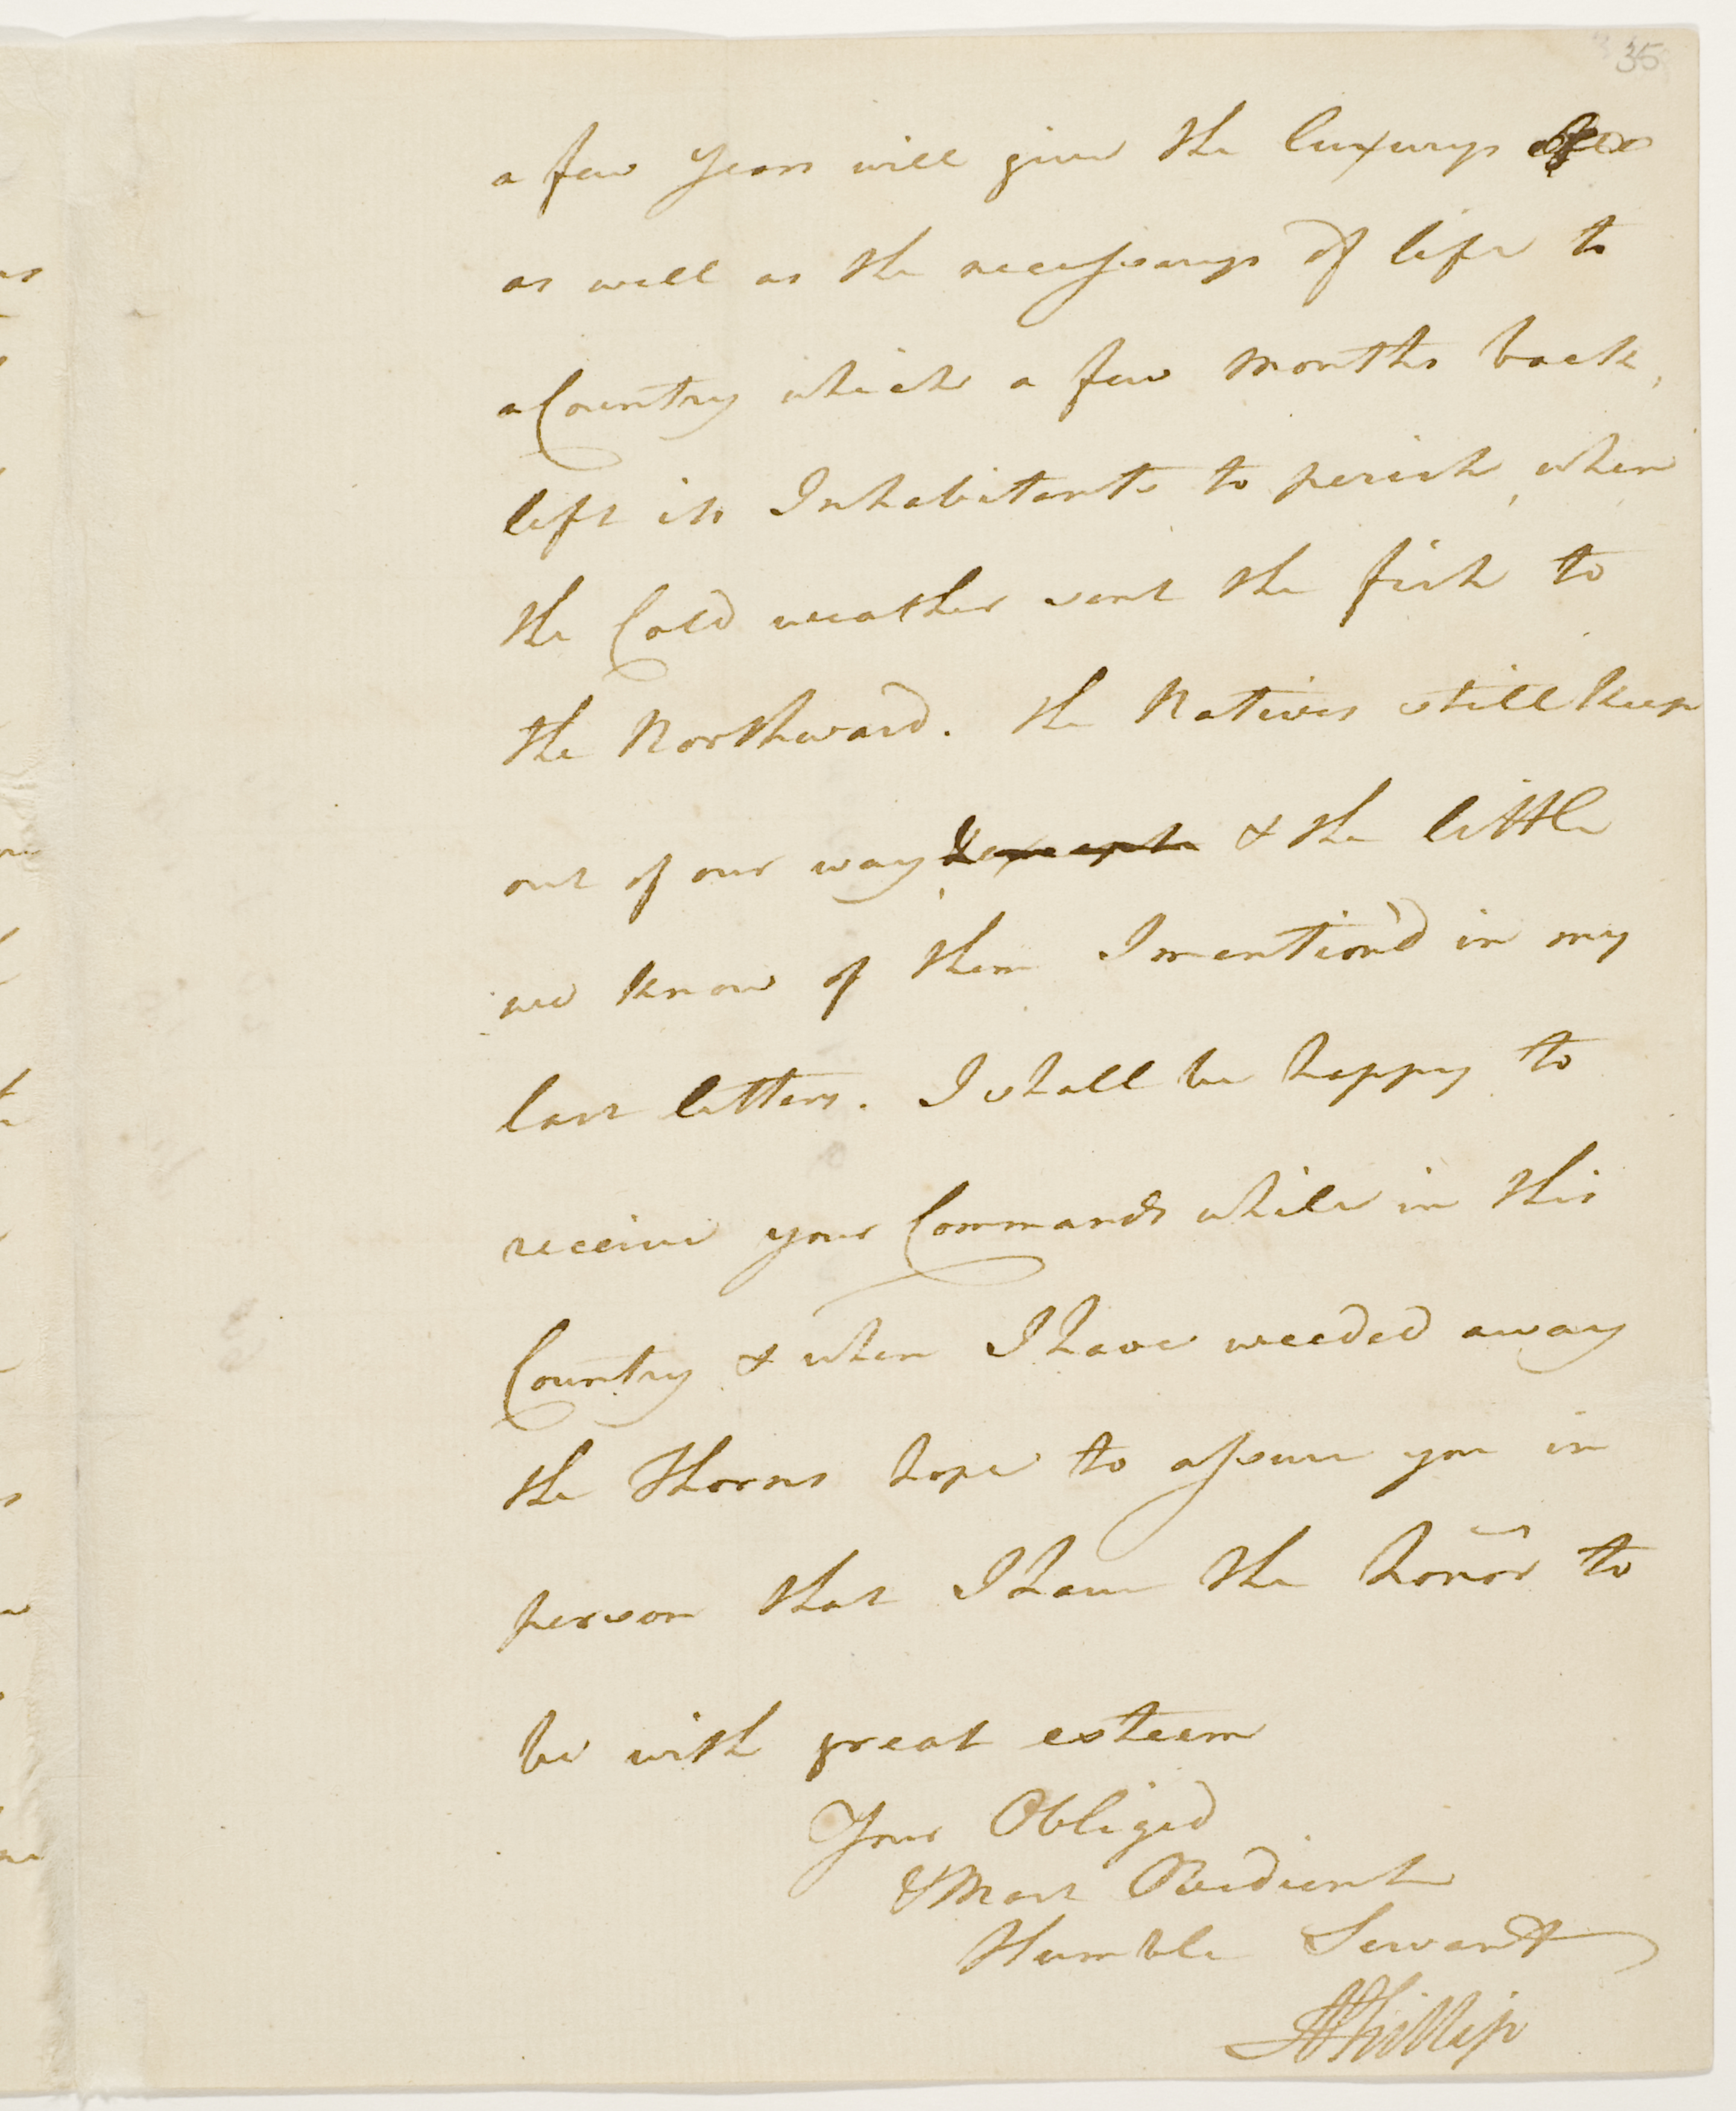 35
a few years will give the luxurys
as well as the necessarys of life to
a Country which a few Months back,
left its Inhabitants to perish, when
the Cold weather sent the fish to
the Northward. the Natives still keep
out of our way & the little
we know of them I mention'd in my
last letters. I shall be happy to
receive your Commands while in this
Country & when I have weeded away
the Thorns hope to assure you in
person that I have the honor to
be with great esteem
Your Obliged
& Most Obedient
Humble Servant
A Phillip